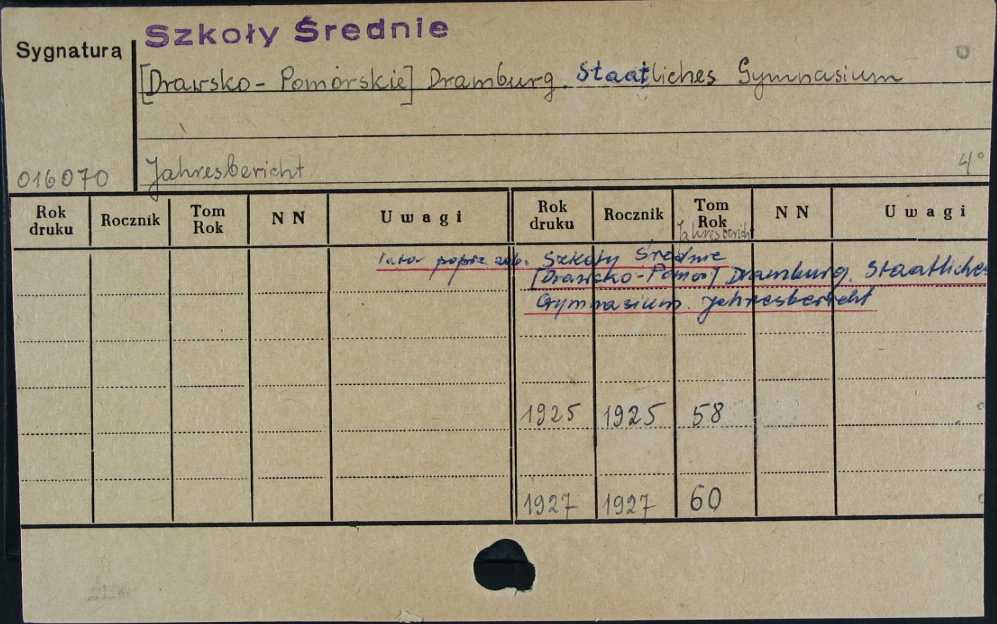 Szkoły Średnie
Sygnatura
[Drawsko-Pomorskie] Dramburg. Staatliches Gymnasium
016070 Jahresbericht 4°
Rok druku Rocznik Tom Rok N N Uwagi Rok druku Rocznik Tom Rok N N Uwagi
Jahresbericht
Szkoły Średnie
[Drawsko-Pomor] Dramburg. Staatliches
Gymnasium. Jahresbericht
1925 1925 58
1927 1927 60